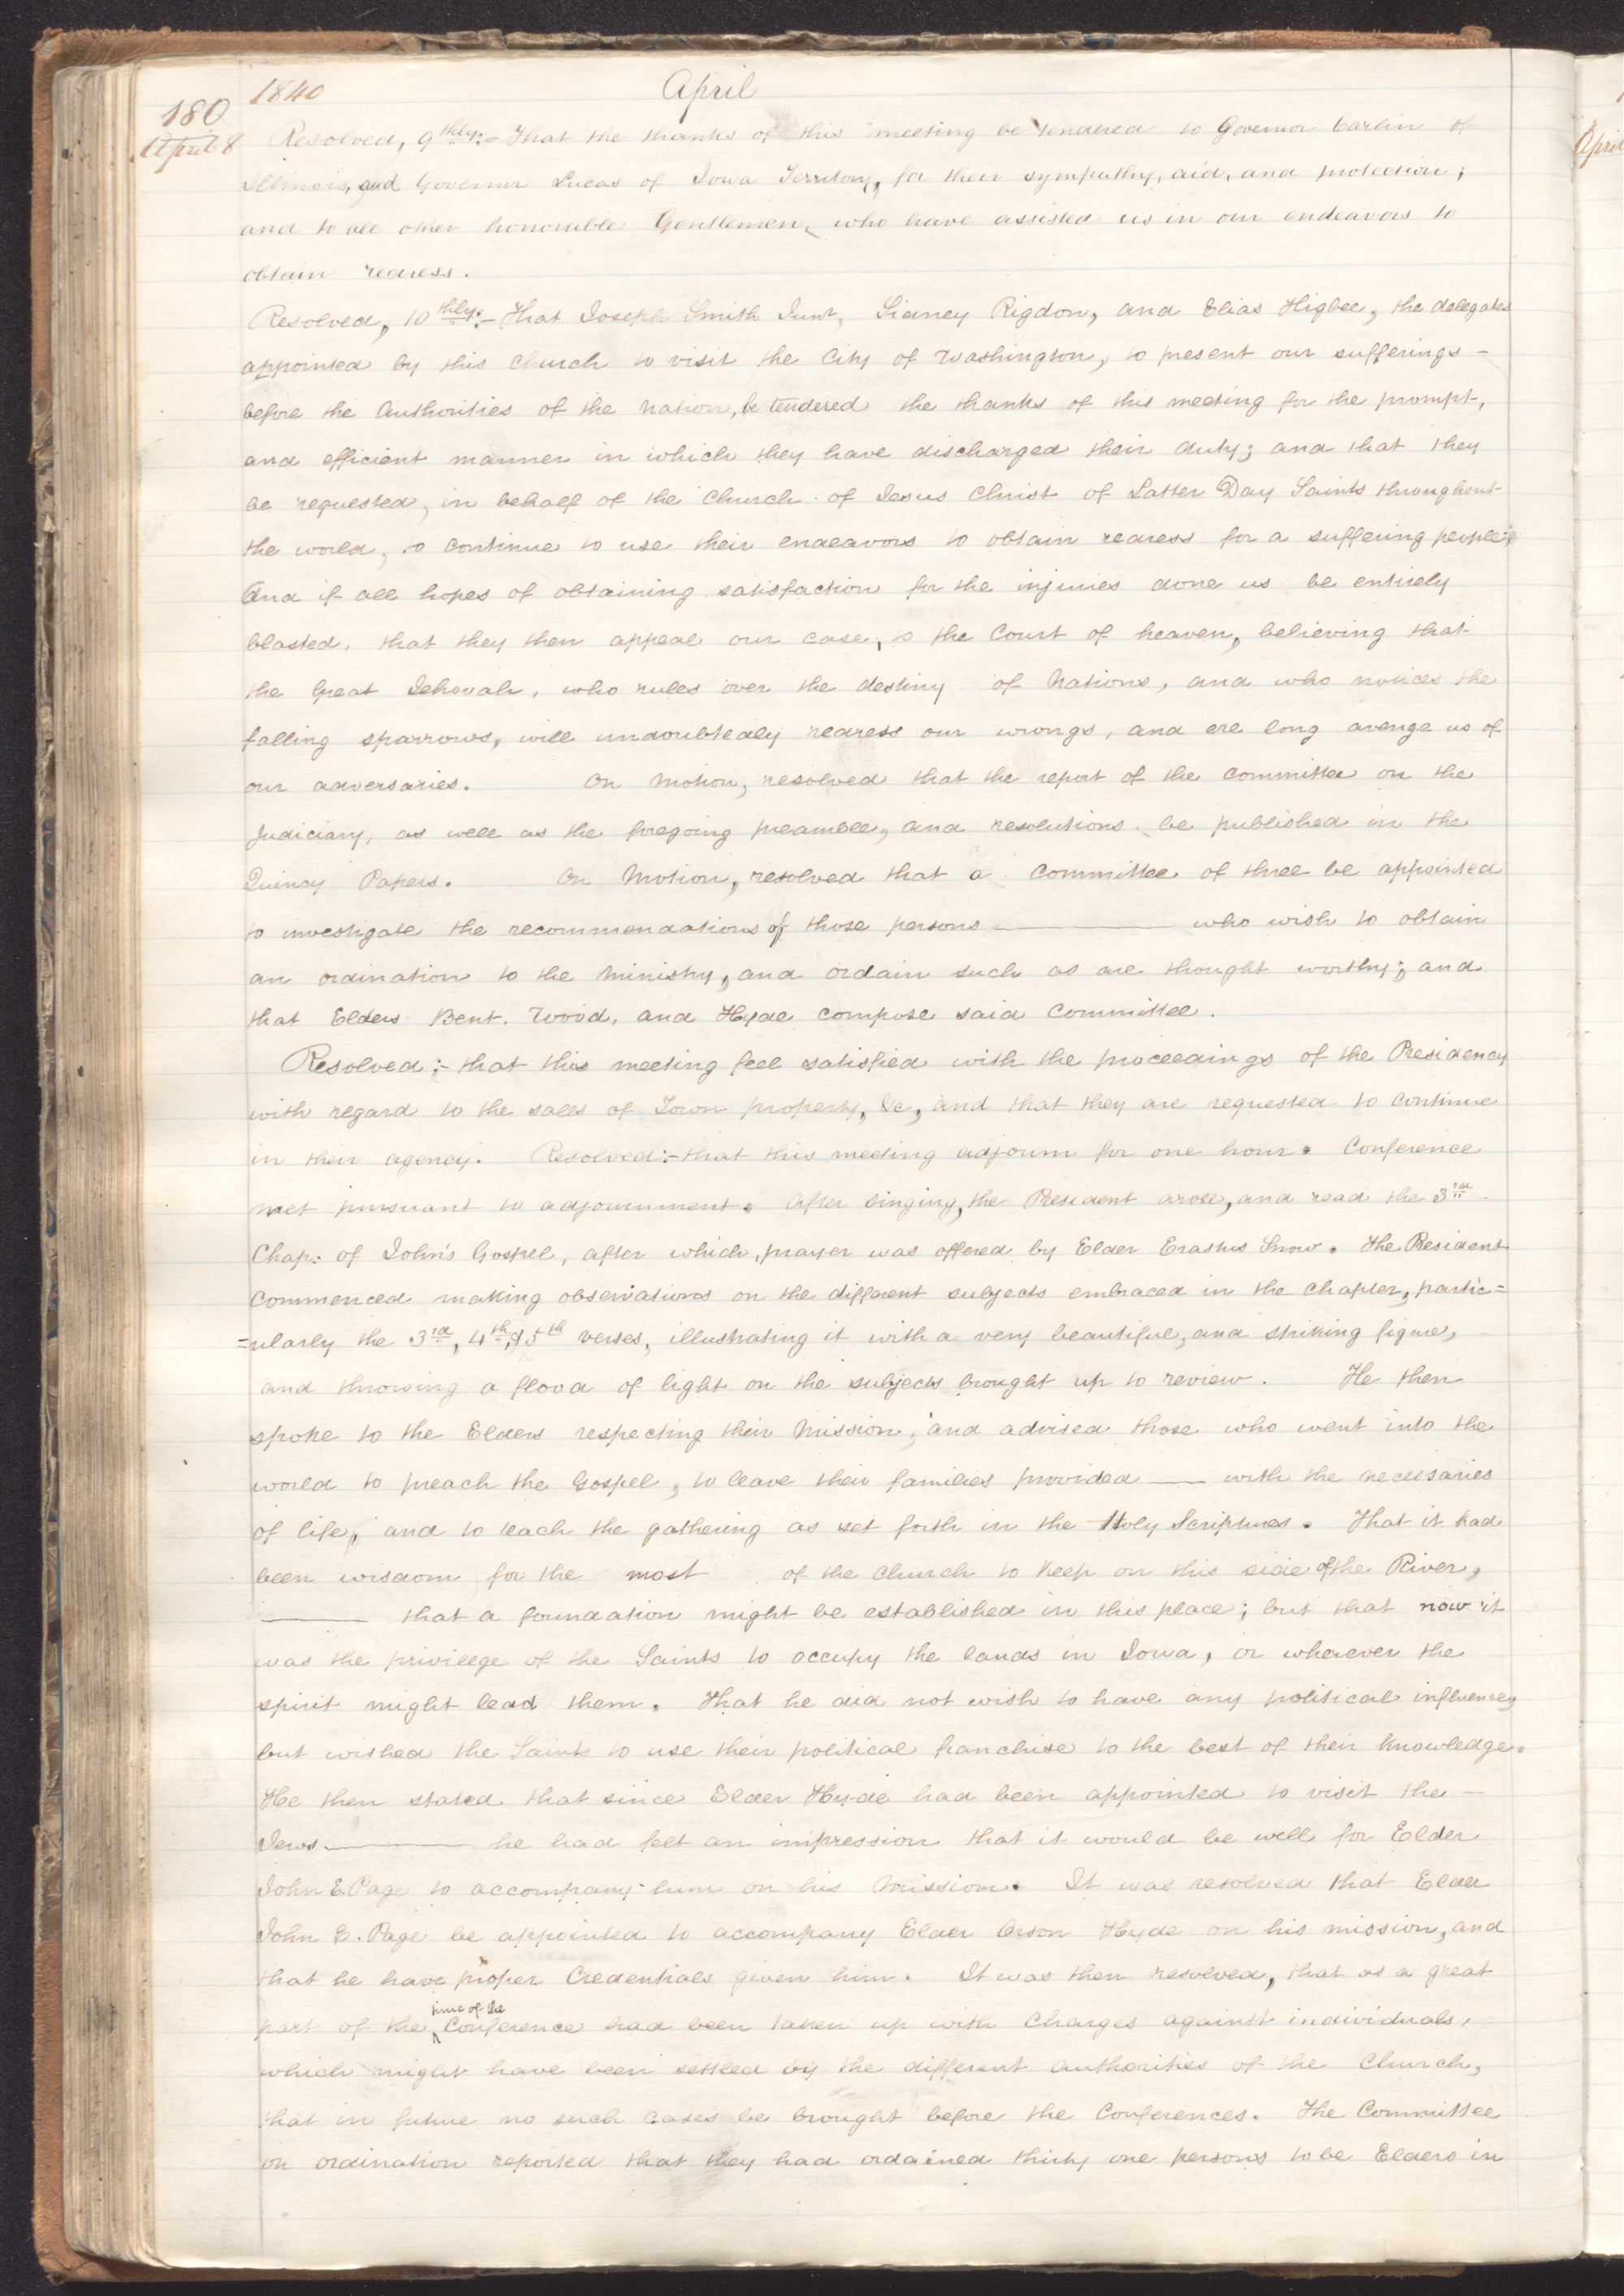 180
1840
April
April 8
Resolved, 9thly:- That the thanks of this meeting be tendered to Governor Carlin of
Illinois, and Governor Lucas of Iowa Territory, for their sympathy, aid, and protection;
and to all other honorable Gentlemen, who have assisted us in our endeavors to
obtain redress.
Resolved, 10thly:- That Joseph Smith Junr, Sidney Rigdon, and Elias Higbee, the delegates
appointed by this Church to visit the City of Washington, to present our sufferings -
before the Authorities of the Nation, be tendered the thanks of this meeting for the prompt,
and efficient manner in which they have discharged their duty; and that they
be requested, in behalf of the Church of Jesus Christ of Latter Day Saints throughout
the world, to continue to use their endeavors to obtain redress for a suffering people;
And if all hopes of obtaining satisfaction for the injuries done us be entirely
blasted, that they then appeal our case, to the Court of heaven, believing that
the Great Jehovah, who rules over the destiny of Nations, and who notices the
falling sparrows, will undoubtedly redress our wrongs, and ere long avenge us of
our adversaries. On Motion, resolved that the report of the Committee on the
Judiciary, as well as the foregoing preamble, and resolutions be published in the
Quincy Papers. On Motion, resolved that a Committee of three be appointed
to investigate the recommendations of those persons ——— who wish to obtain
an ordination to the Ministry, and ordain such as are thought worthy; and
that Elders Bent, Wood, and Hyde compose said Committee.
Resolved:- that this meeting feel satisfied with the proceedings of the Presidency
with regard to the sales of Town property, &c, and that they are requested to continue
in their agency. Resolved:- that this meeting adjourn for one hour. Conference
met pursuant to adjournment. After singing, the President arose, and read the 3rd
Chap: of John's Gospel, after which, prayer was offered by Elder Erastus Snow. The President
commenced making observations on the different subjects embraced in the Chapter, partic=
=ularly the 3rd, 4th, & 5th verses, illustrating it with a very beautiful, and striking figure,
and throwing a flood of light on the subjects brought up to review. He then
spoke to the Elders respecting their Mission, and advised those who went into the
world to preach the Gospel, to leave their families provided — with the necessaries
of life, and to teach the gathering as set forth in the Holy Scriptures. That it had
been wisdom for the most of the Church to keep on this side of the River,
——— that a foundation might be established in this place; but that now it
was the privilege of the Saints to occupy the lands in Iowa, or wherever the
spirit might lead them. That he did not wish to have any political influence,
but wished the Saints to use their political franchise to the best of their knowledge.
He then stated that since Elder Hyde had been appointed to visit the -
Jews ——— he had felt an impression that it would be well for Elder
John E. Page to accompany him on his Mission. It was resolved that Elder
John E. Page be appointed to accompany Elder Orson Hyde on his mission, and
that he have proper Credentials given him. It was then resolved, that as a great
part of the ^time of the Conference had been taken up with Charges against individuals,
which might have been settled by the different authorities of the Church,
that in future no such cases be brought before the Conferences. The Committee
on ordination reported that they had ordained thirty one persons to be Elders in